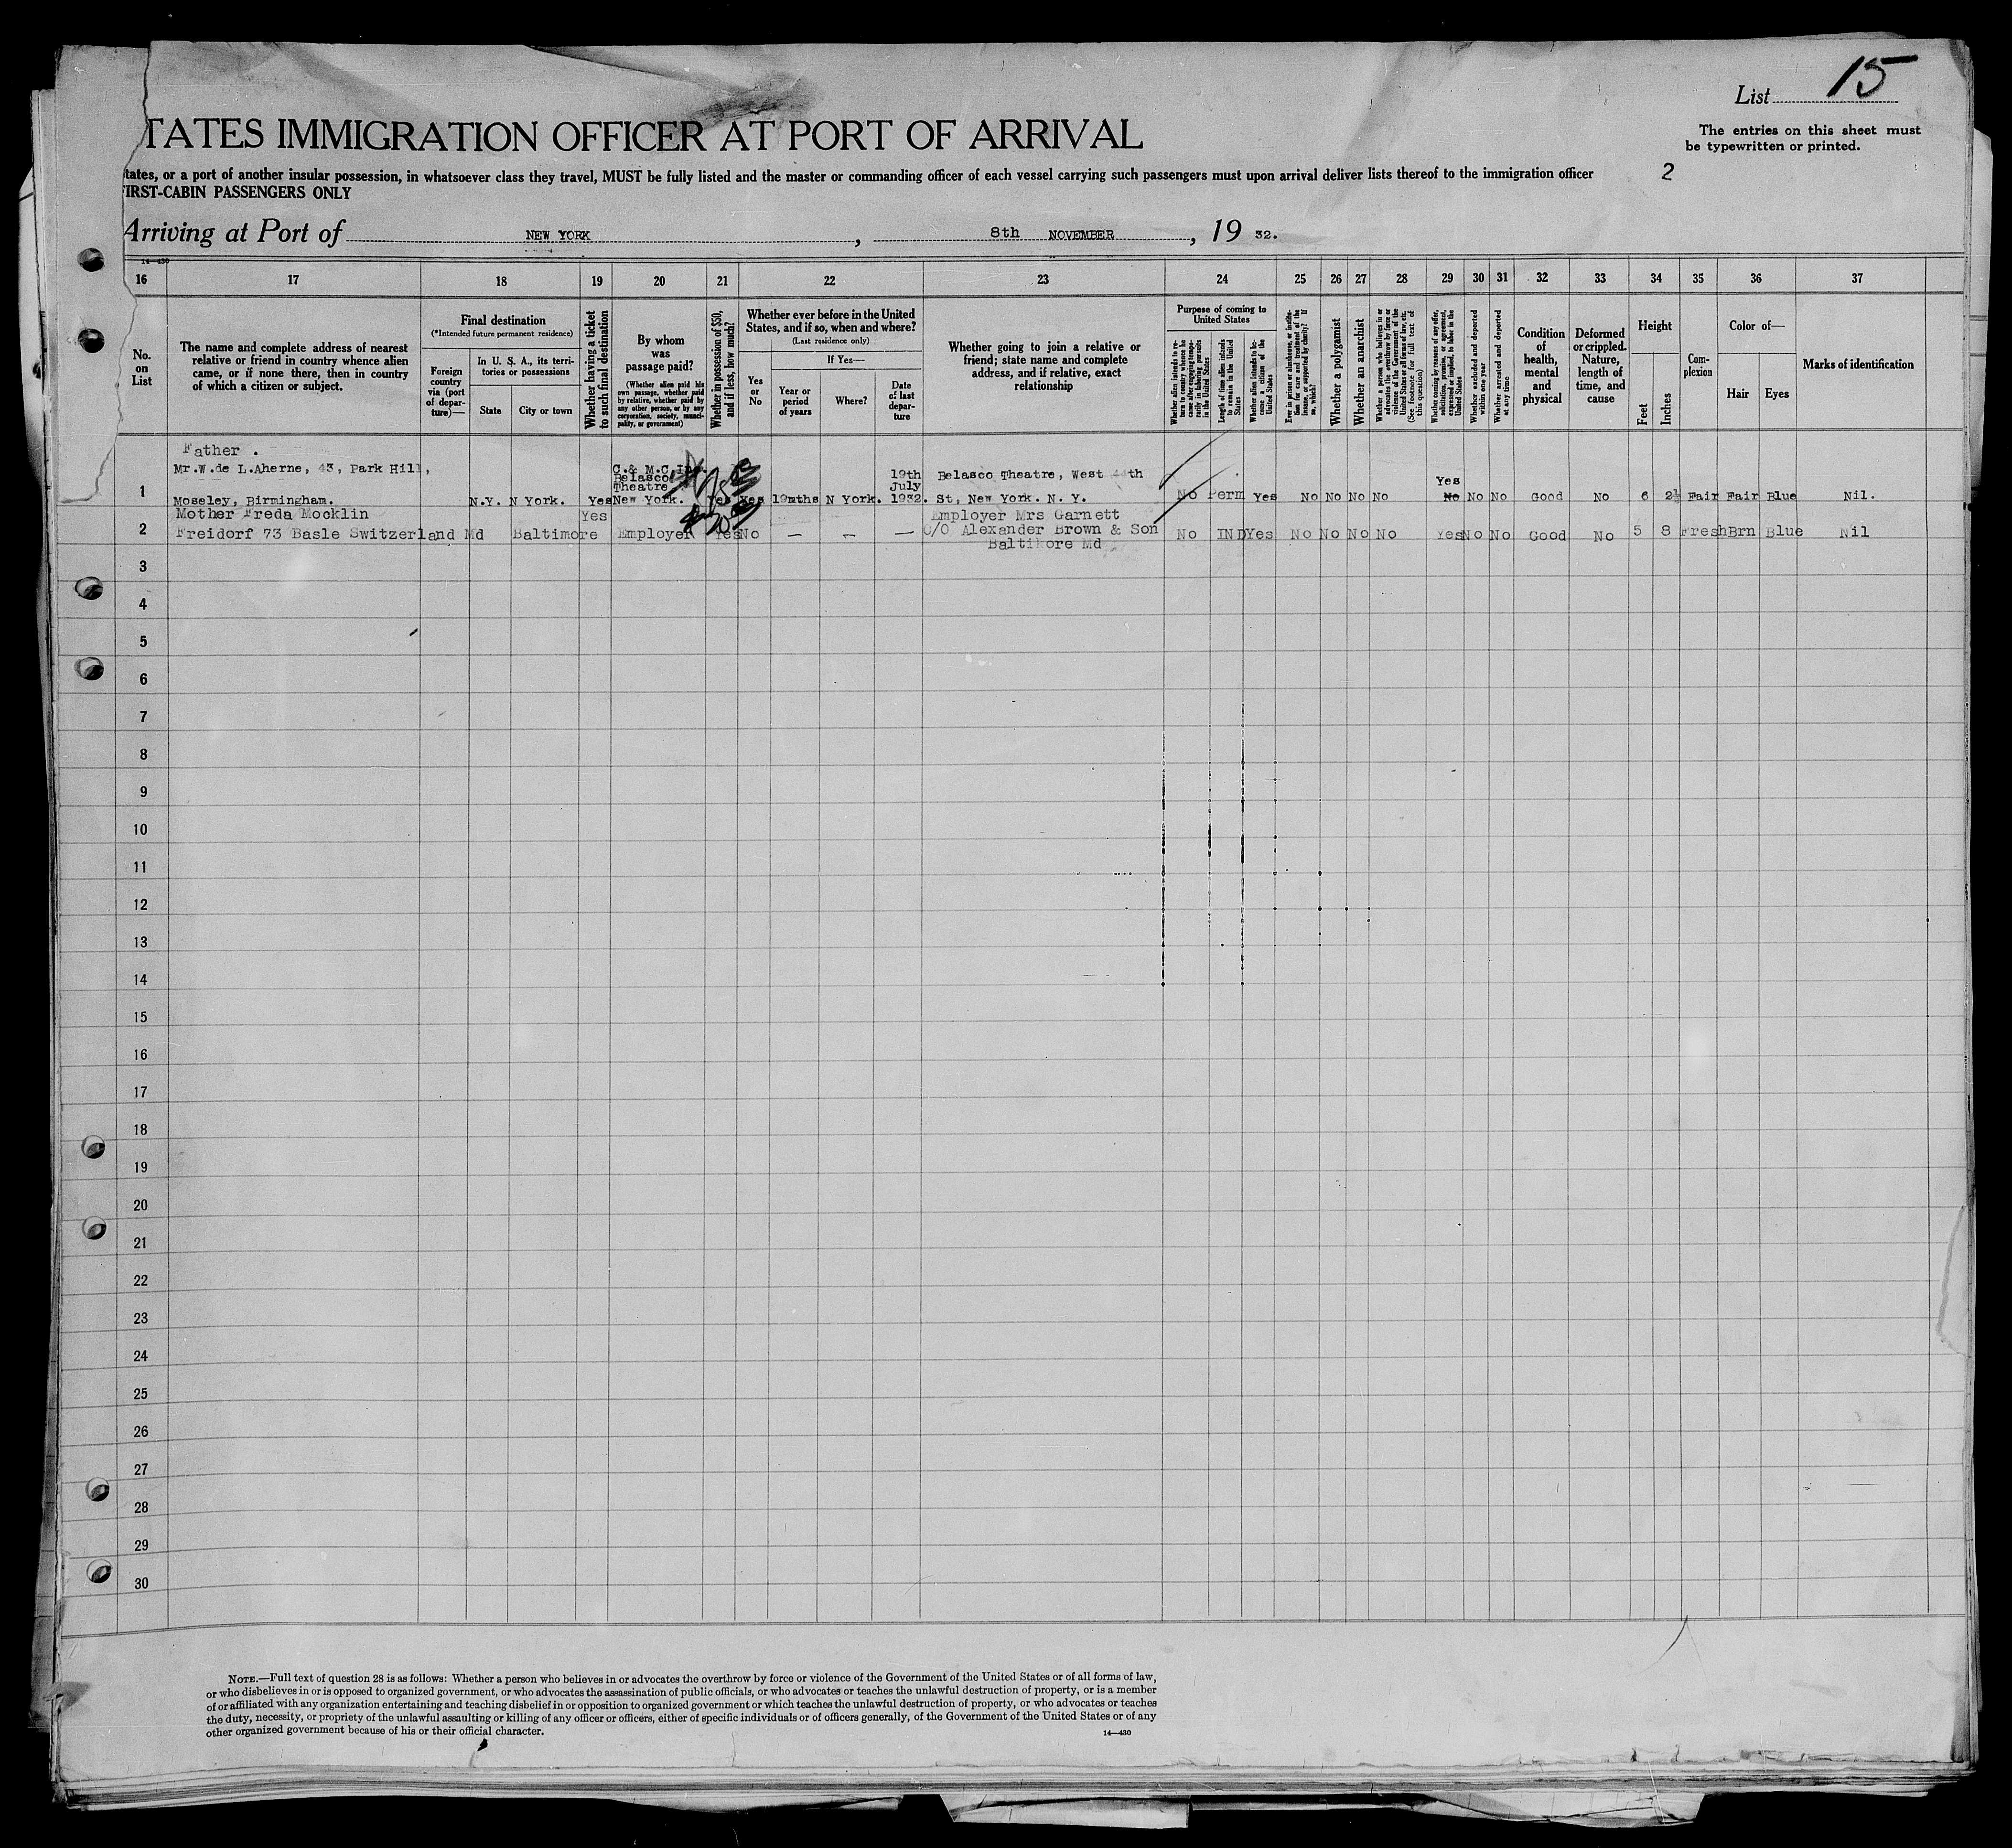 List 15
The entries on this sheet must
be typewritten or printed.
TATES IMMIGRATION OFFICER AT PORT OF ARRIVAL
tates, or a port of another insular possession, in whatsoever class they travel, MUST be fully listed and the master or commanding officer of each vessel carrying such passengers must upon arrival deliver lists thereof to the immigration officer
2
IRST-CABIN PASSENGERS ONLY
Arriving at Port of NEW YORK, 8th NOVEMBER, 19 32.
14—430
16 17 18 19 20 21 22 23 24 25 26 27 28 29 30 31 32 33 34 35 36 37
No.
on
List
The name and complete address of nearest
relative or friend in country whence alien
came, or if none there, then in country
of which a citizen or subject.
Final destination
(*Intended future permanent residence)
Foreign
country
via (port
of depar-
ture)—
In U. S. A., its terri-
tories or possessions
State
City or town
Whether having a ticket
to such final destination
By whom
was
passage paid?
(Whether alien paid his
own passage, whether paid
by relative, whether paid by
any other person, or by any
corporation, society, munici-
pality, or government)
Whether in possession of $50,
and if less, how much?
Whether ever before in the United
States, and if so, when and where?
(Last residence only)
Yes
or
No
If Yes—
Year or
period
of years
Where?
Date
of last
depar-
ture
Whether going to join a relative or
friend; state name and complete
address, and if relative, exact
relationship
Purpose of coming to
United States
Whether alien intends to re-
turn to country whence he
came after engaging tempo-
rarily in laboring pursuits
in the United States
Length of time alien intends
to remain in the United
States
Whether alien intends to be-
come a citizen of the
United States
Ever in prison or almshouse, or institu-
tion for care and treatment of the
insane, or supported by charity? If
so, which?
Whether a polygamist
Whether an anarchist
Whether a person who believes in or
advocates the overthrow by force or
violence of the Government of the
United States or all forms of law, etc.
(See footnote for full text of
this question)
Whether coming by reasons of any offer,
solicitation, promise, or agreement,
expressed or implied, to labor in the
United States
Whether excluded and deported
within one year
Whether arrested and deported
at any time
Condition
of
health,
mental
and
physical
Deformed
or crippled.
Nature,
length of
time, and
cause
Height
Feet
Inches
Com-
plexion
Color of—
Hair
Eyes
Marks of identification
Father .
Mr.W.de L.Aherne, 43, Park Hill, C.& M.C,Inc. Belasco Theatre 19th July Belasco Theatre, West 44th Yes
1 Moseley, Birmingham. N.Y. N York. Yes New York. Yes Yes 19mths N York. 1932. St, New York. N. Y. No Perm Yes No No No No No No No Good No 6 2½ Fair Fair Blue Nil.
Mother Freda Mocklin Yes Employer Mrs Garnett
2 Freidorf 73 Basle Switzerland Md Baltimore Employer Yes No — — — C/O Alexander Brown & Son No IND Yes No No No No Yes No No Good No 5 8 Fresh Brn Blue Nil
Baltimore Md
3
4
5
6
7
8
9
10
11
12
13
14
15
16
17
18
19
20
21
22
23
24
25
26
27
28
29
30
NOTE.—Full text of question 28 is as follows: Whether a person who believes in or advocates the overthrow by force or violence of the Government of the United States or of all forms of law,
or who disbelieves in or is opposed to organized government, or who advocates the assassination of public officials, or who advocates or teaches the unlawful destruction of property, or is a member
of or affiliated with any organization entertaining and teaching disbelief in or opposition to organized government or which teaches the unlawful destruction of property, or who advocates or teaches
the duty, necessity, or propriety of the unlawful assaulting or killing of any officer or officers, either of specific individuals or of officers generally, of the Government of the United States or of any
other organized government because of his or their official character.
14—430